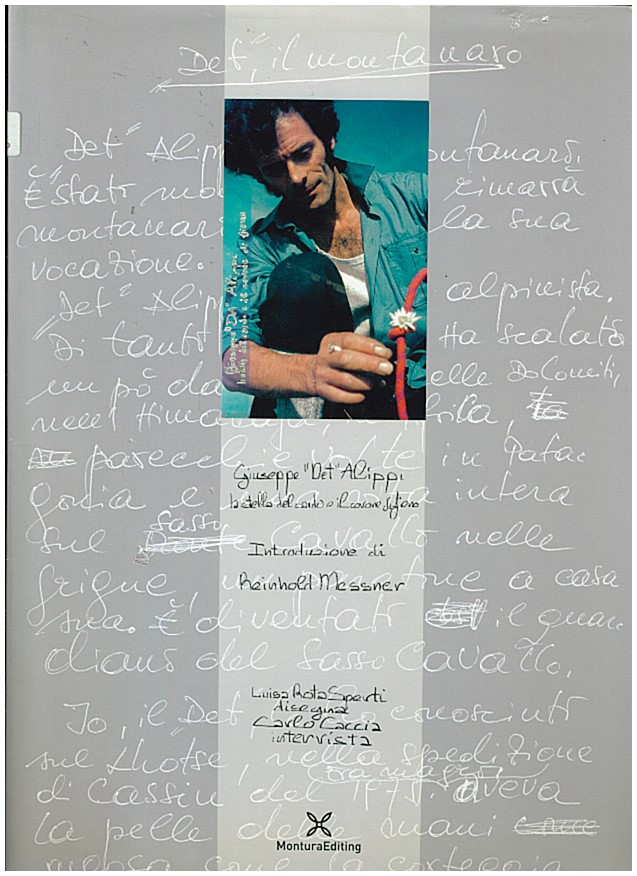 "Det", il montanaro
"Det" Alipp montanaro.
È stato rimarrà
montanaro la sua
vocazione.
"Det" Alipp alpinista.
Di tanto Ha scalato
un pò da elle Dolomiti,
nell'Himalaya,
parecchie volte in Pata-
gonia e intera
sasso
sul Cavallo nelle
Grigne, a casa
sua. È diventato il guar-
diano del Sasso Cavallo.
Io, il "Det" conosciuto
sul Lhotse, nella spedizione
era magro
di Cassin del 1975. Aveva
la pelle delle mani
come la corteccia
Giuseppe "Det" Alippi
Giuseppe "Det" Alippi
la stella del cardo e il cavare
Introduzione di
Reinhold Messner
Luisa Rota Sperti
disegna
Carlo Caccia
intervista
MonturaEditing